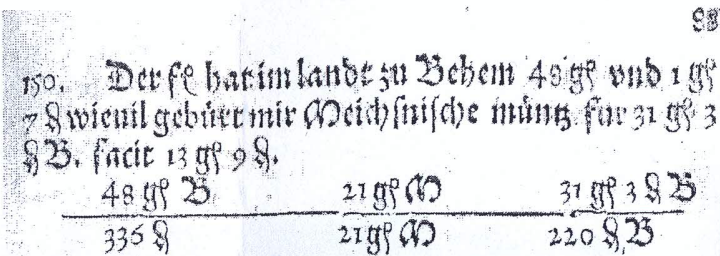 88
150. Der fl hat im landt zu Behem 48 gl vnd 1 gl
7 ₰ wieuil gebürt mir Meichsnische müntz für 31 gl 3
₰ B. facit 13 gl 9 ₰.
48 gl B 21 gl M 31 gl 3 ₰ B
336 ₰ 21 gl M 220 ₰ B